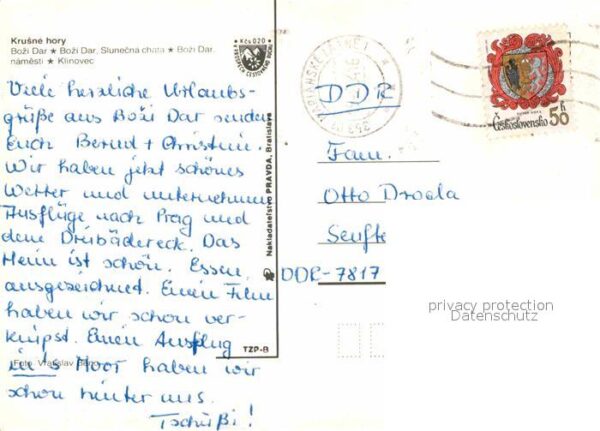 Krušné hory
Boží Dar ★ Boží Dar, Slunečná chata ★ Boží Dar,
náměstí ★ Klínovec
Kčs 0,20
Viele herzliche Urlaubs-
grüße aus Boži Dar senden
Euch Bernd + Christine.
Wir haben jetzt schönes
Wetter und unternehmen
Ausflüge nach Prag und
dem Dreibädereck. Das
Heim ist schön. Essen
ausgezeichnet. Einen Film
haben wir schon ver-
knipst. Einen Ausflug
in's Moor haben wir
schon hinter uns.
Tschüßi!
Foto: Vratislav
TZP-B
Nakladateľstvo PRAVDA, Bratislava
Československo 50 h
DDR
Fam.
Otto Drogla
Senfte
DDR-7817
privacy protection
Datenschutz